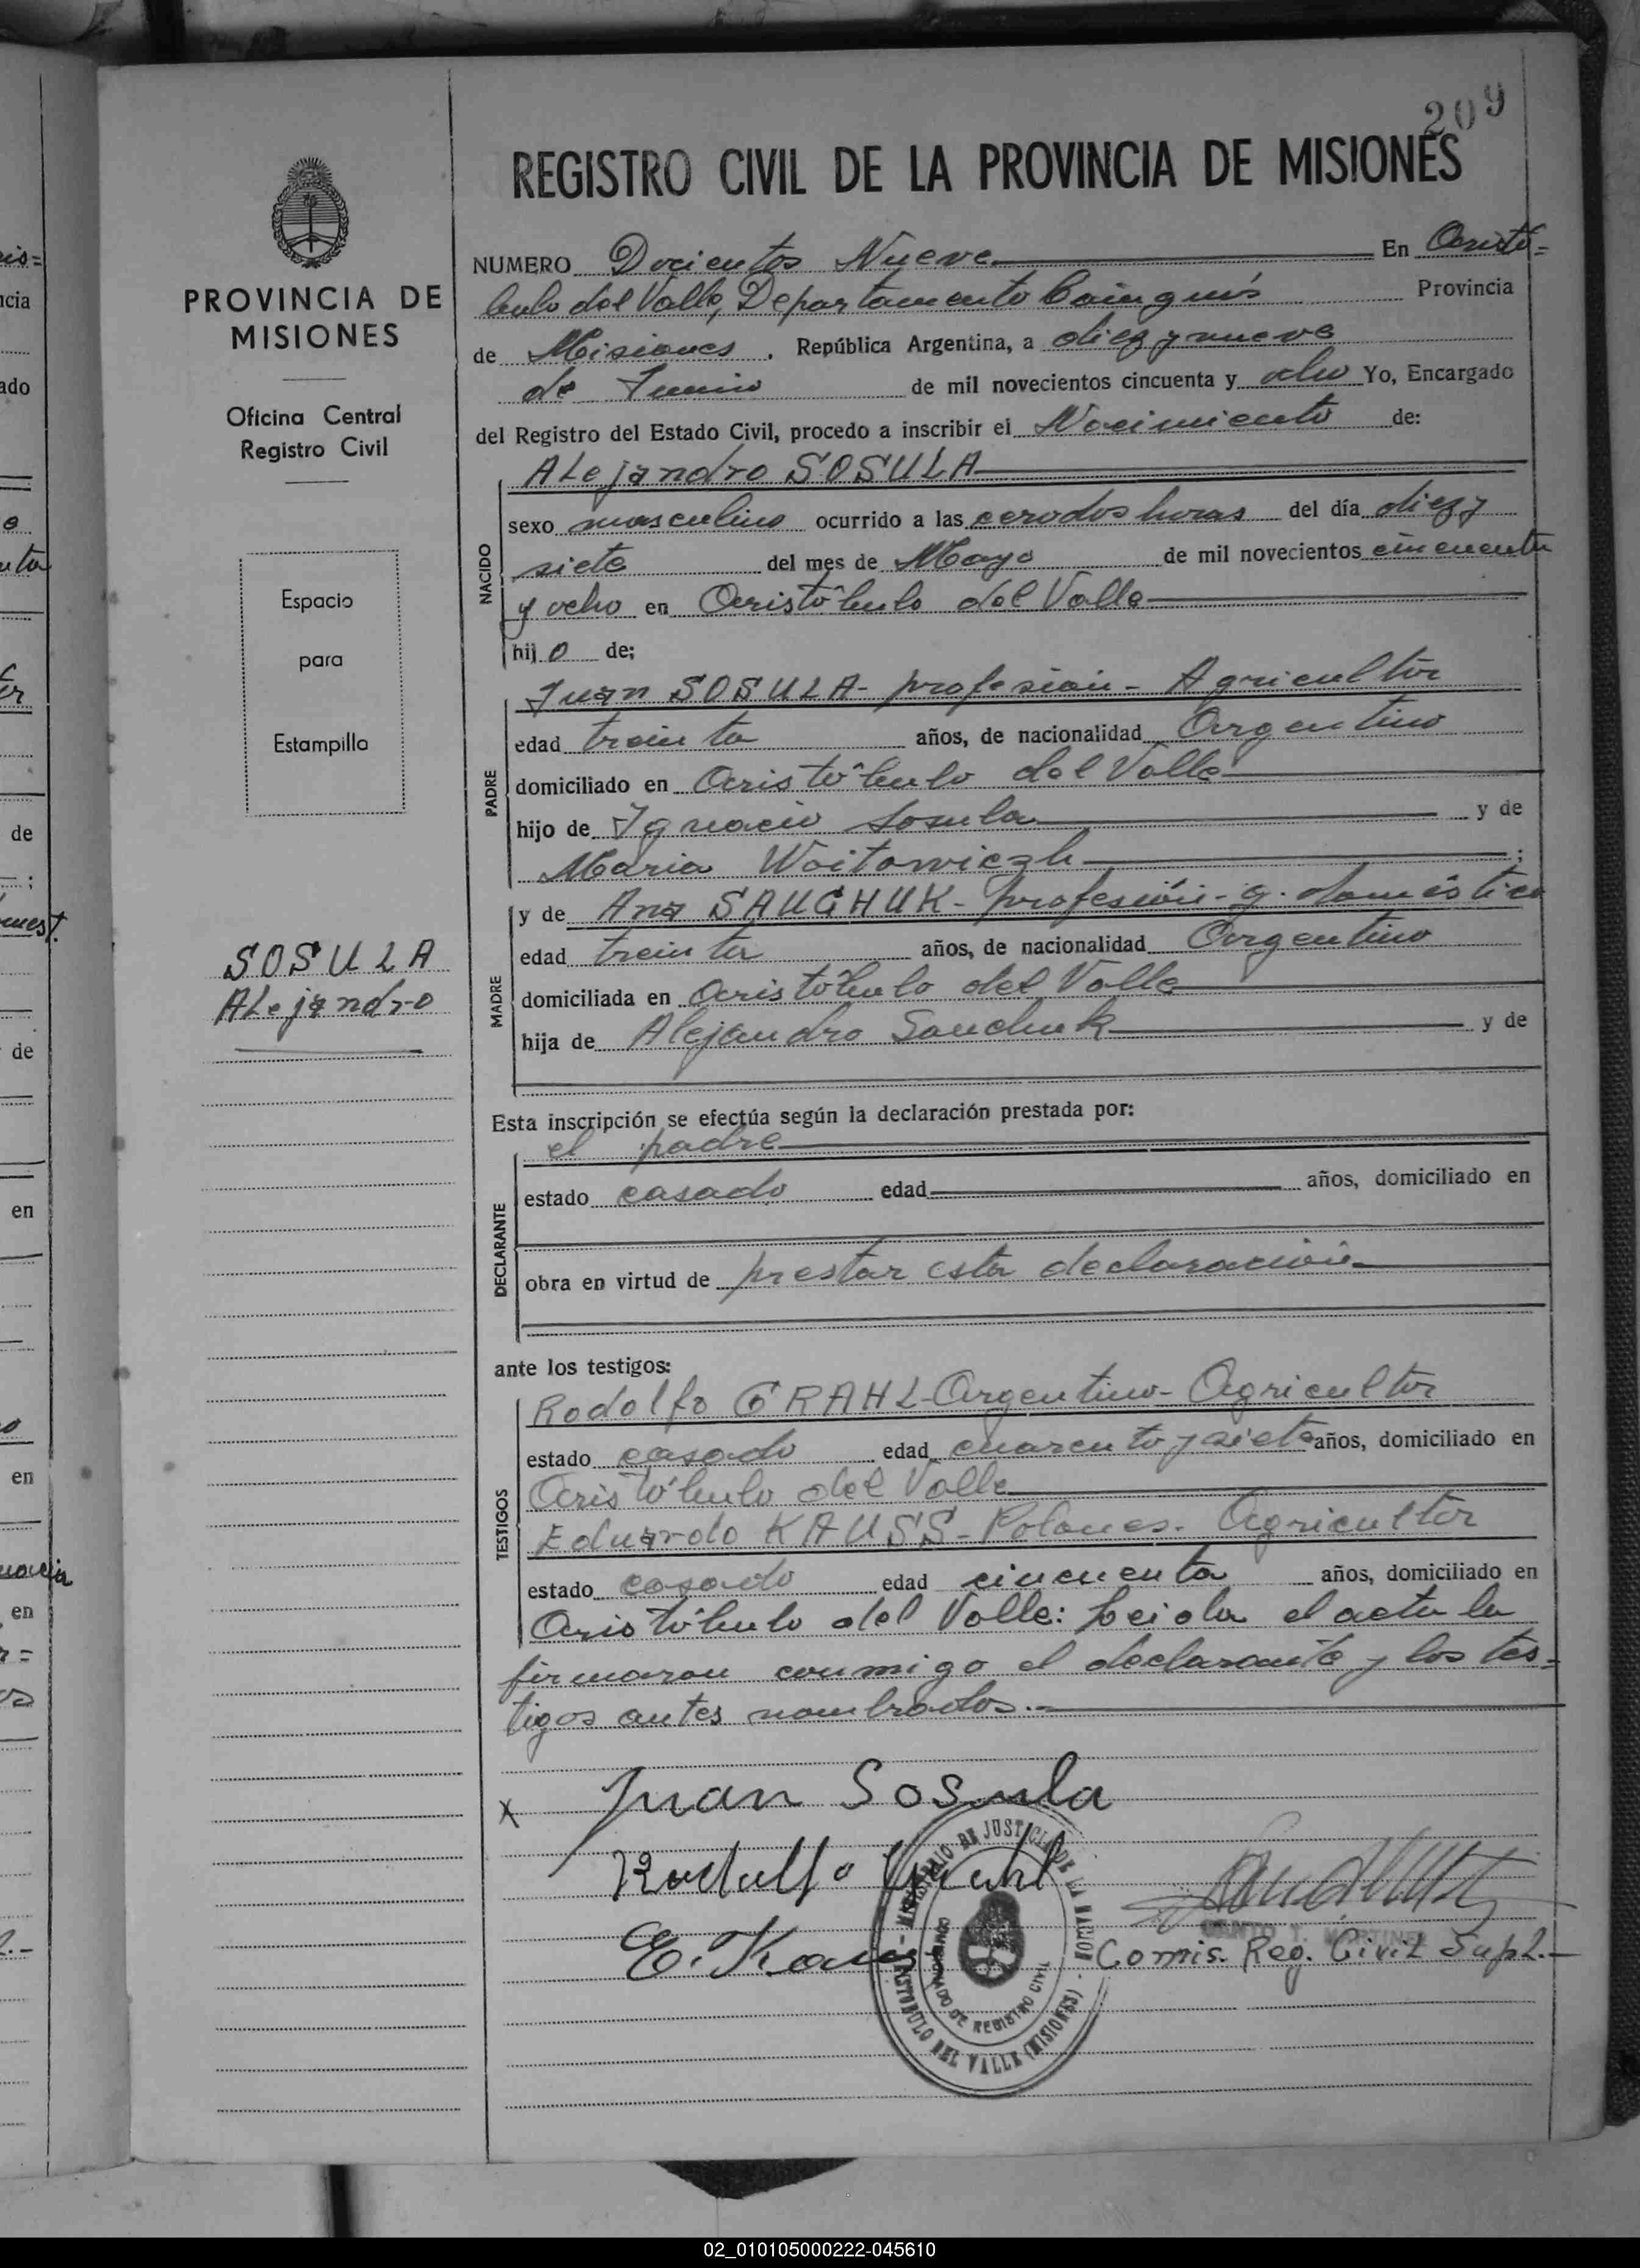 209
REGISTRO CIVIL DE LA PROVINCIA DE MISIONES
PROVINCIA DE
MISIONES
Oficina Central
Registro Civil
Espacio
para
Estampilla
SOSULA
Alejandro
NUMERO Docientos Nueve En Aristó=
bulo del Valle, Departamento Cainguás Provincia
de Misiones, República Argentina, a diez y nueve
de Junio de mil novecientos cincuenta y ocho Yo, Encargado
del Registro del Estado Civil, procedo a inscribir el Nacimiento de:
NACIDO
Alejandro SOSULA
sexo masculino ocurrido a las cerodos horas del día diez y
siete del mes de Mayo de mil novecientos cincuenta
y ocho en Aristóbulo del Valle
hijo de:
PADRE
Juan SOSULA- profesión- Agricultor
edad treinta años, de nacionalidad Argentino
domiciliado en Aristóbulo del Valle
hijo de Ignacio Sosula y de
Maria Woitowiczh ;
MADRE
y de Ana SAUCHUK- profesión- q. doméstico
edad treinta años, de nacionalidad Argentino
domiciliada en Aristóbulo del Valle
hija de Alejandro Sauchuk y de
Esta inscripción se efectúa según la declaración prestada por:
DECLARANTE
el padre
estado casado edad años, domiciliado en
obra en virtud de prestar esta declaración
ante los testigos:
TESTIGOS
Rodolfo GRAHL-Argentino- Agricultor
estado casado edad cuarenta y siete años, domiciliado en
Aristóbulo del Valle
Eduardo KAUSS- Polones- Agricultor
estado casado edad cincuenta años, domiciliado en
Aristóbulo del Valle: Leida el acta la
firmaron conmigo el declarante y los tes=
tigos antes nombrados.-
x Juan Sosula
Rodolfo Grahl
E. Kauss
MINISTERIO DE JUSTICIA DE LA NACION
ARISTOBULO DEL VALLE (MISIONES)
DE REGISTRO CIVIL
T. MARTINEZ
Comis. Reg. Civil Supl.-
02_010105000222-045610